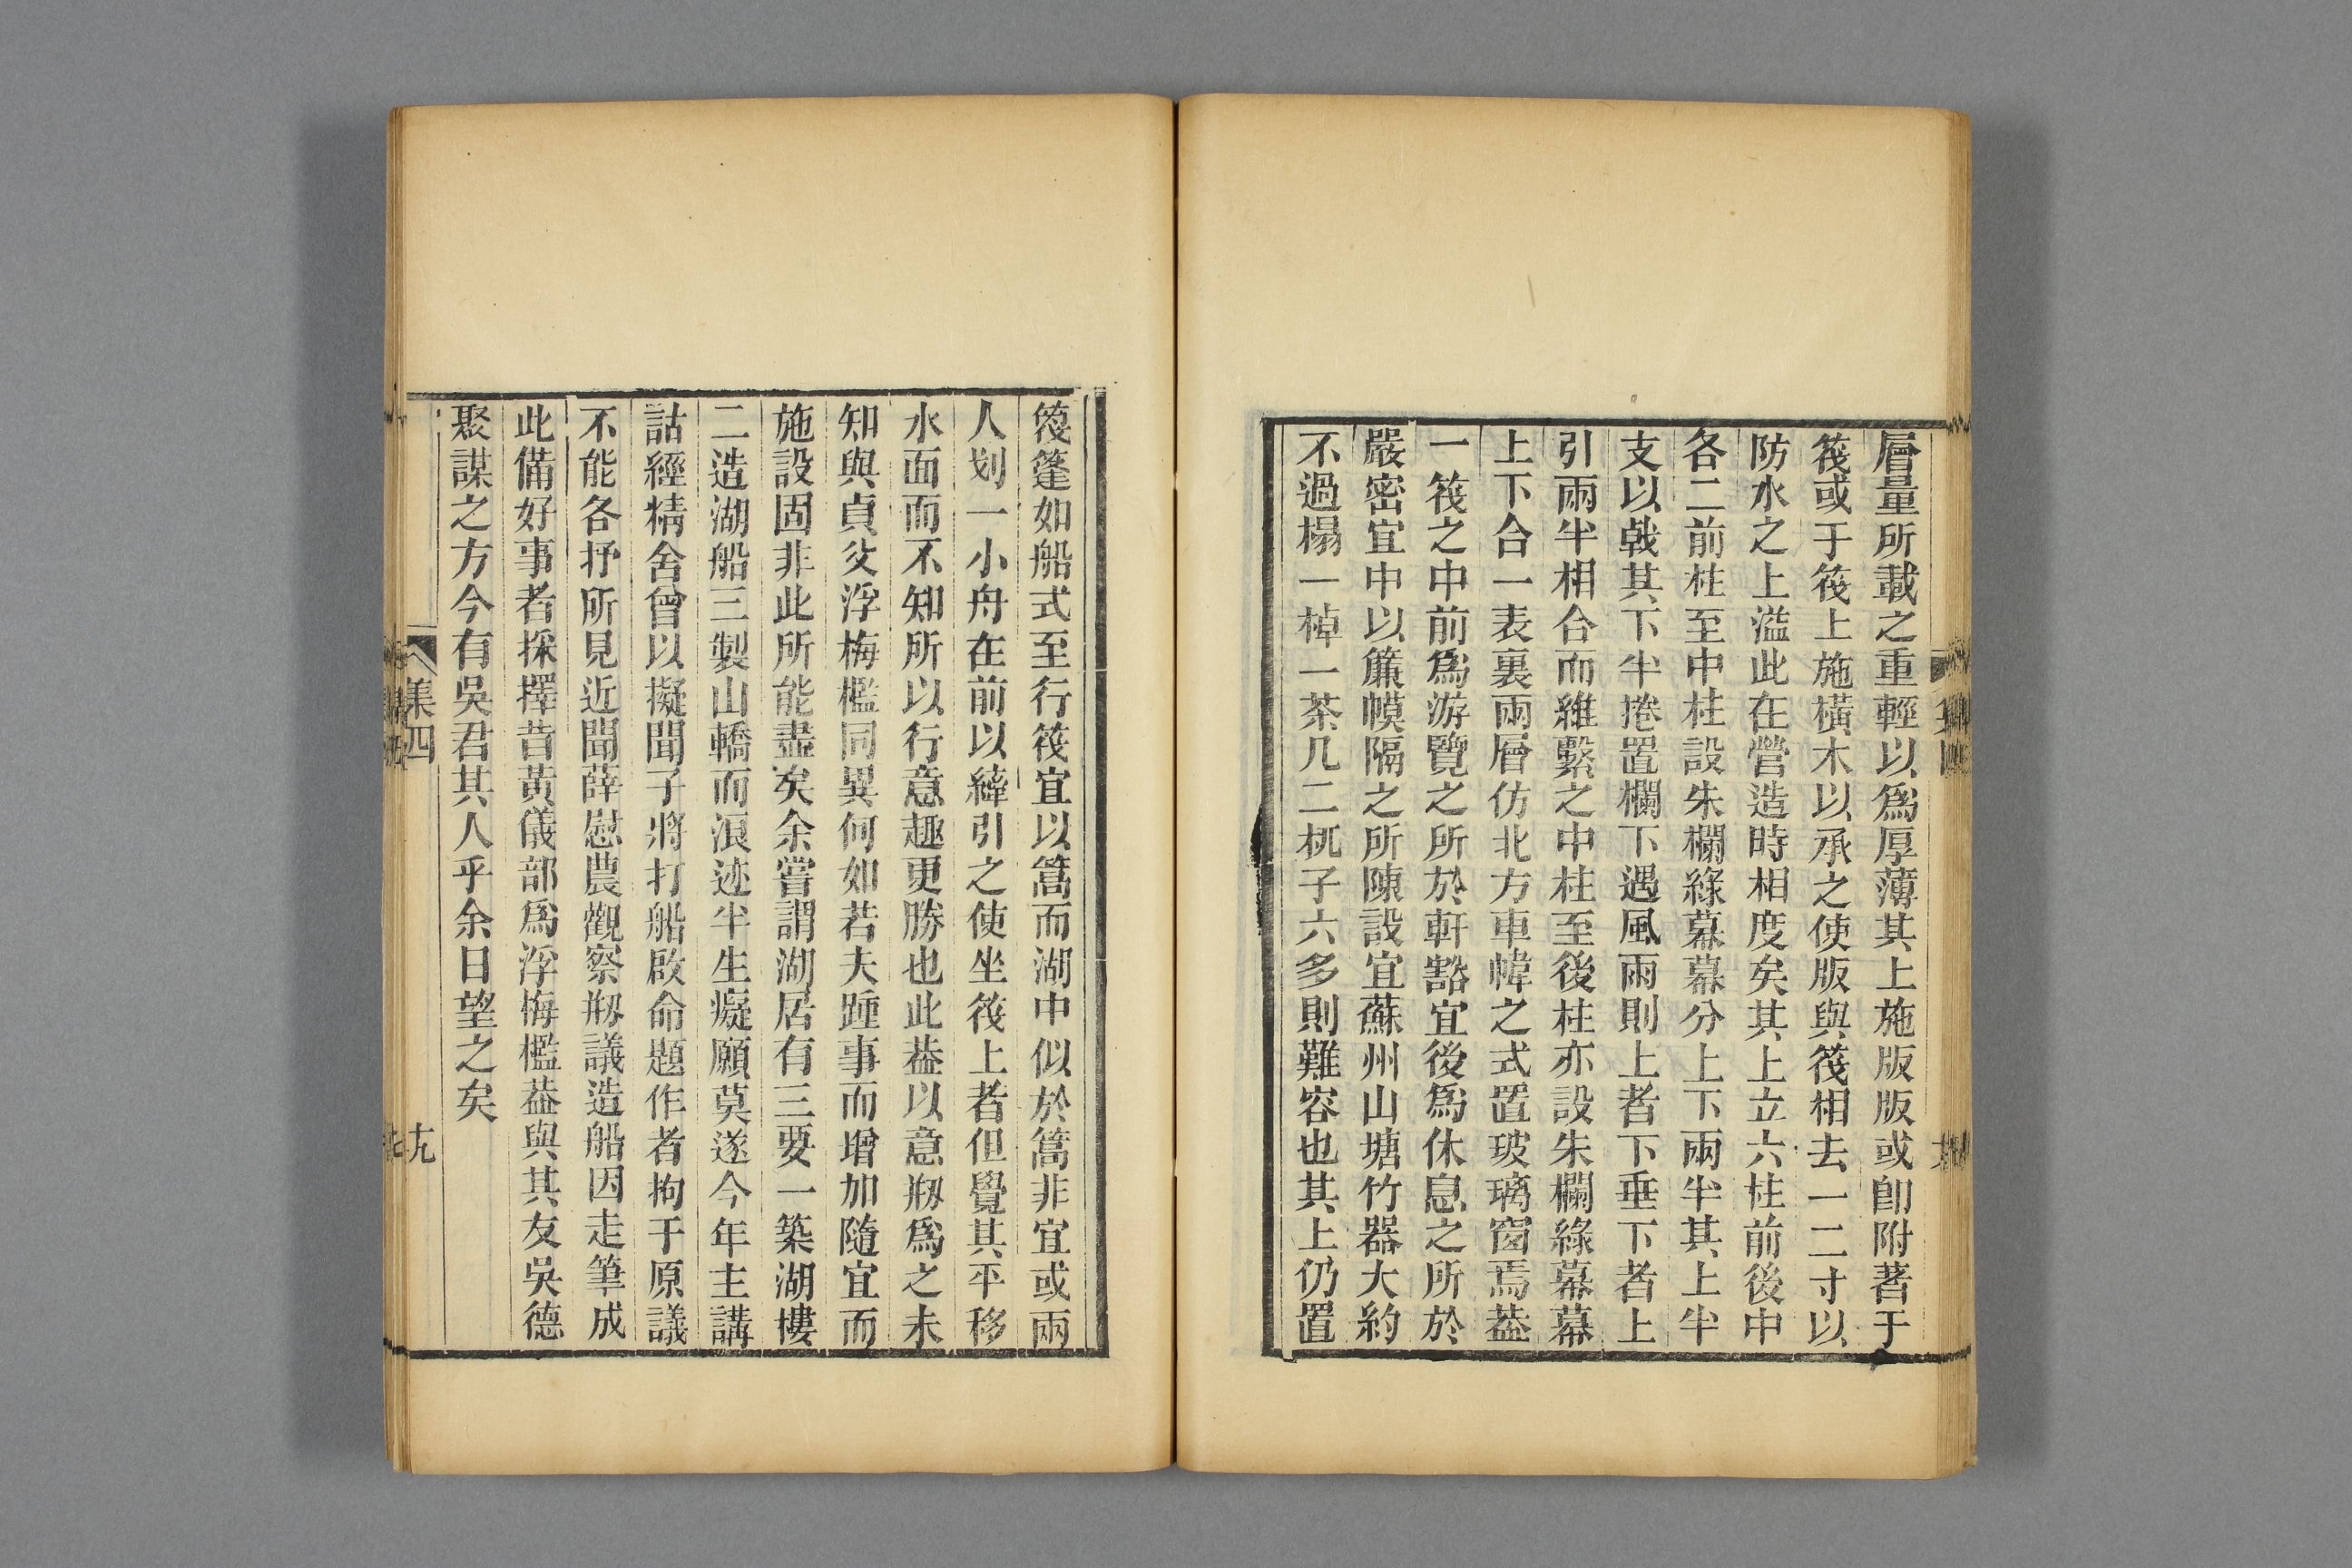 層量所載之重輕以爲厚薄其上施版版或卽附著于
筏或于筏上施橫木以承之使版與筏相去一二寸以
防水之上溢此在營造時相度矣其上立六柱前後中
各二前柱至中柱設朱欄綠幕幕分上下兩半其上半
支以戟其下半捲置欄下遇風雨則上者下垂下者上
引兩半相合而維繫之中柱至後柱亦設朱欄綠幕幕
上下合一表裏兩層仿北方車幃之式置玻璃窗焉葢
一筏之中前爲游覽之所於軒豁宜後爲休息之所於
嚴密宜中以簾幙隔之所陳設宜蘇州山塘竹器大約
不過榻一棹一茶几二杌子六多則難容也其上仍置
篾篷如船式至行筏宜以篙而湖中似於篙非宜或兩
人划一小舟在前以縴引之使坐筏上者但覺其平移
水面而不知所以行意趣更勝也此葢以意剏爲之未
知與貞父浮梅檻同異何如若夫踵事而增加隨宜而
施設固非此所能盡矣余嘗謂湖居有三要一築湖樓
二造湖船三製山轎而浪迹半生癡願莫遂今年主講
詁經精舍曾以擬聞子將打船啟命題作者拘于原議
不能各抒所見近聞薛慰農觀察剏議造船因走筆成
此備好事者採擇昔黃儀部爲浮梅檻葢與其友吳德
聚謀之方今有吳君其人乎余日望之矣
集四
十九